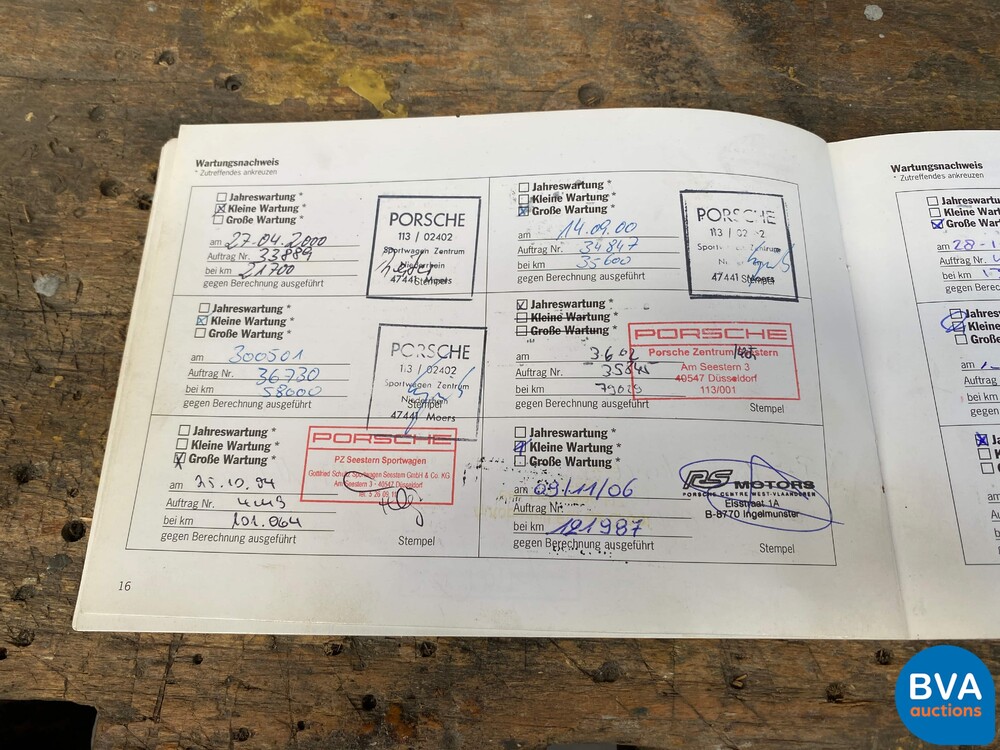 Wartungsnachweis
* Zutreffendes ankreuzen
Jahreswartung *
Kleine Wartung *
Große Wartung *
am 27.04.2000
Auftrag Nr. 33889
bei km 21700
gegen Berechnung ausgeführt
PORSCHE
113 / 02402
Sportwagen Zentrum
Niederrhein
47441 Moers
Stempel
Jahreswartung *
Kleine Wartung *
Große Wartung *
am 14.09.00
Auftrag Nr. 34847
bei km 35600
gegen Berechnung ausgeführt
PORSCHE
113 / 02
Sportwagen Zentrum
47441 Moers
Stempel
Jahreswartung *
Kleine Wartung *
Große Wartung *
am 300501
Auftrag Nr. 36730
bei km 58600
gegen Berechnung ausgeführt
PORSCHE
113 /02402
Sportwagen Zentrum
Niederrhein
47441 Moers
Stempel
Jahreswartung *
Kleine Wartung *
Große Wartung *
am 3.6.02
Auftrag Nr. 35845
bei km
gegen Berechnung ausgeführt
PORSCHE
Porsche Zentrum
Am Seestern 3
40547 Düsseldorf
113/001
Stempel
Jahreswartung *
Kleine Wartung *
Große Wartung *
am 25.10.04
Auftrag Nr.
bei km 101.064
gegen Berechnung ausgeführt
PORSCHE
PZ Seestern Sportwagen
Sportwagen Seestern GmbH & Co. KG
Am Seestern 3 - 40547 Düsseldorf
Stempel
Jahreswartung *
Kleine Wartung *
Große Wartung *
am 09/11/06
Auftrag Nr.
bei km 121987
gegen Berechnung ausgeführt
RS MOTORS
PORSCHE CENTRE WEST-VLAANDEREN
Elsstraat 1A
B-8770 Ingelmunster
Stempel
16
Wartungsnachweis
* Zutreffendes ankreuzen
Kleine
Große
am
Auftrag Nr.
bei km
gegen
Kleine
Große
am
Auftrag
bei km
gegen
am
Auftrag
bei km
BVA
auctions